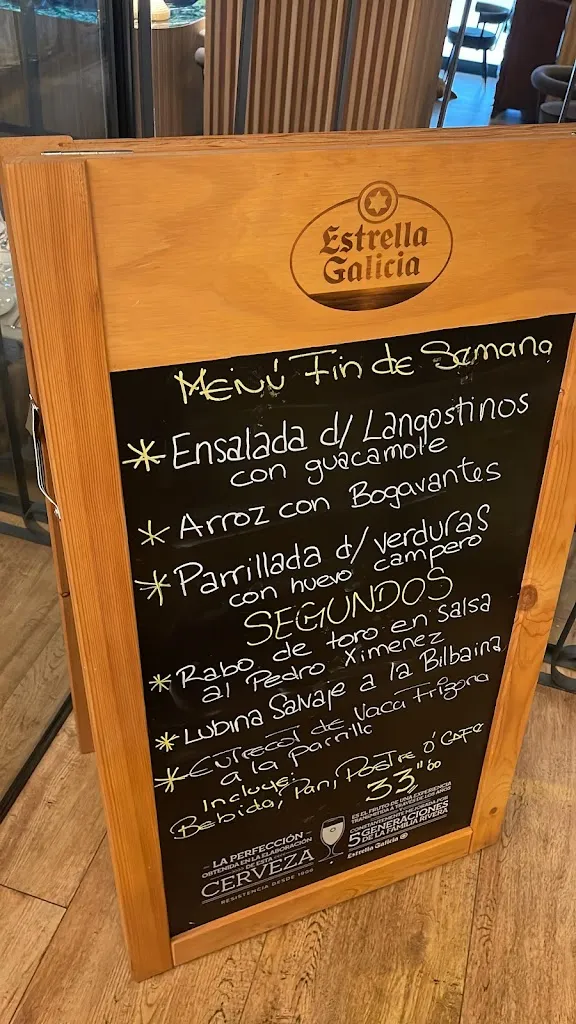 Estrella
Galicia
Menú Fin de Semana
* Ensalada d/ Langostinos
con guacamole
* Arroz con Bogavantes
* Parrillada d/ verduras
con huevo campero
SEGUNDOS
* Rabo de toro en salsa
al Pedro Ximenez
* Lubina Salvaje a la Bilbaina
* Entrecot de Vaca Frisona
a la parrilla
Incluye:
Bebida, Pan, Postre ó Cafe
33"60
LA PERFECCIÓN
OBTENIDA EN LA ELABORACIÓN
DE ESTA
CERVEZA
RESISTENCIA DESDE 1906
ES EL FRUTO DE UNA EXPERIENCIA
TRANSMITIDA A TRAVÉS DE LOS AÑOS
CONSTANTEMENTE MEJORADA POR
5 GENERACIONES
DE LA FAMILIA RIVERA
Estrella Galicia